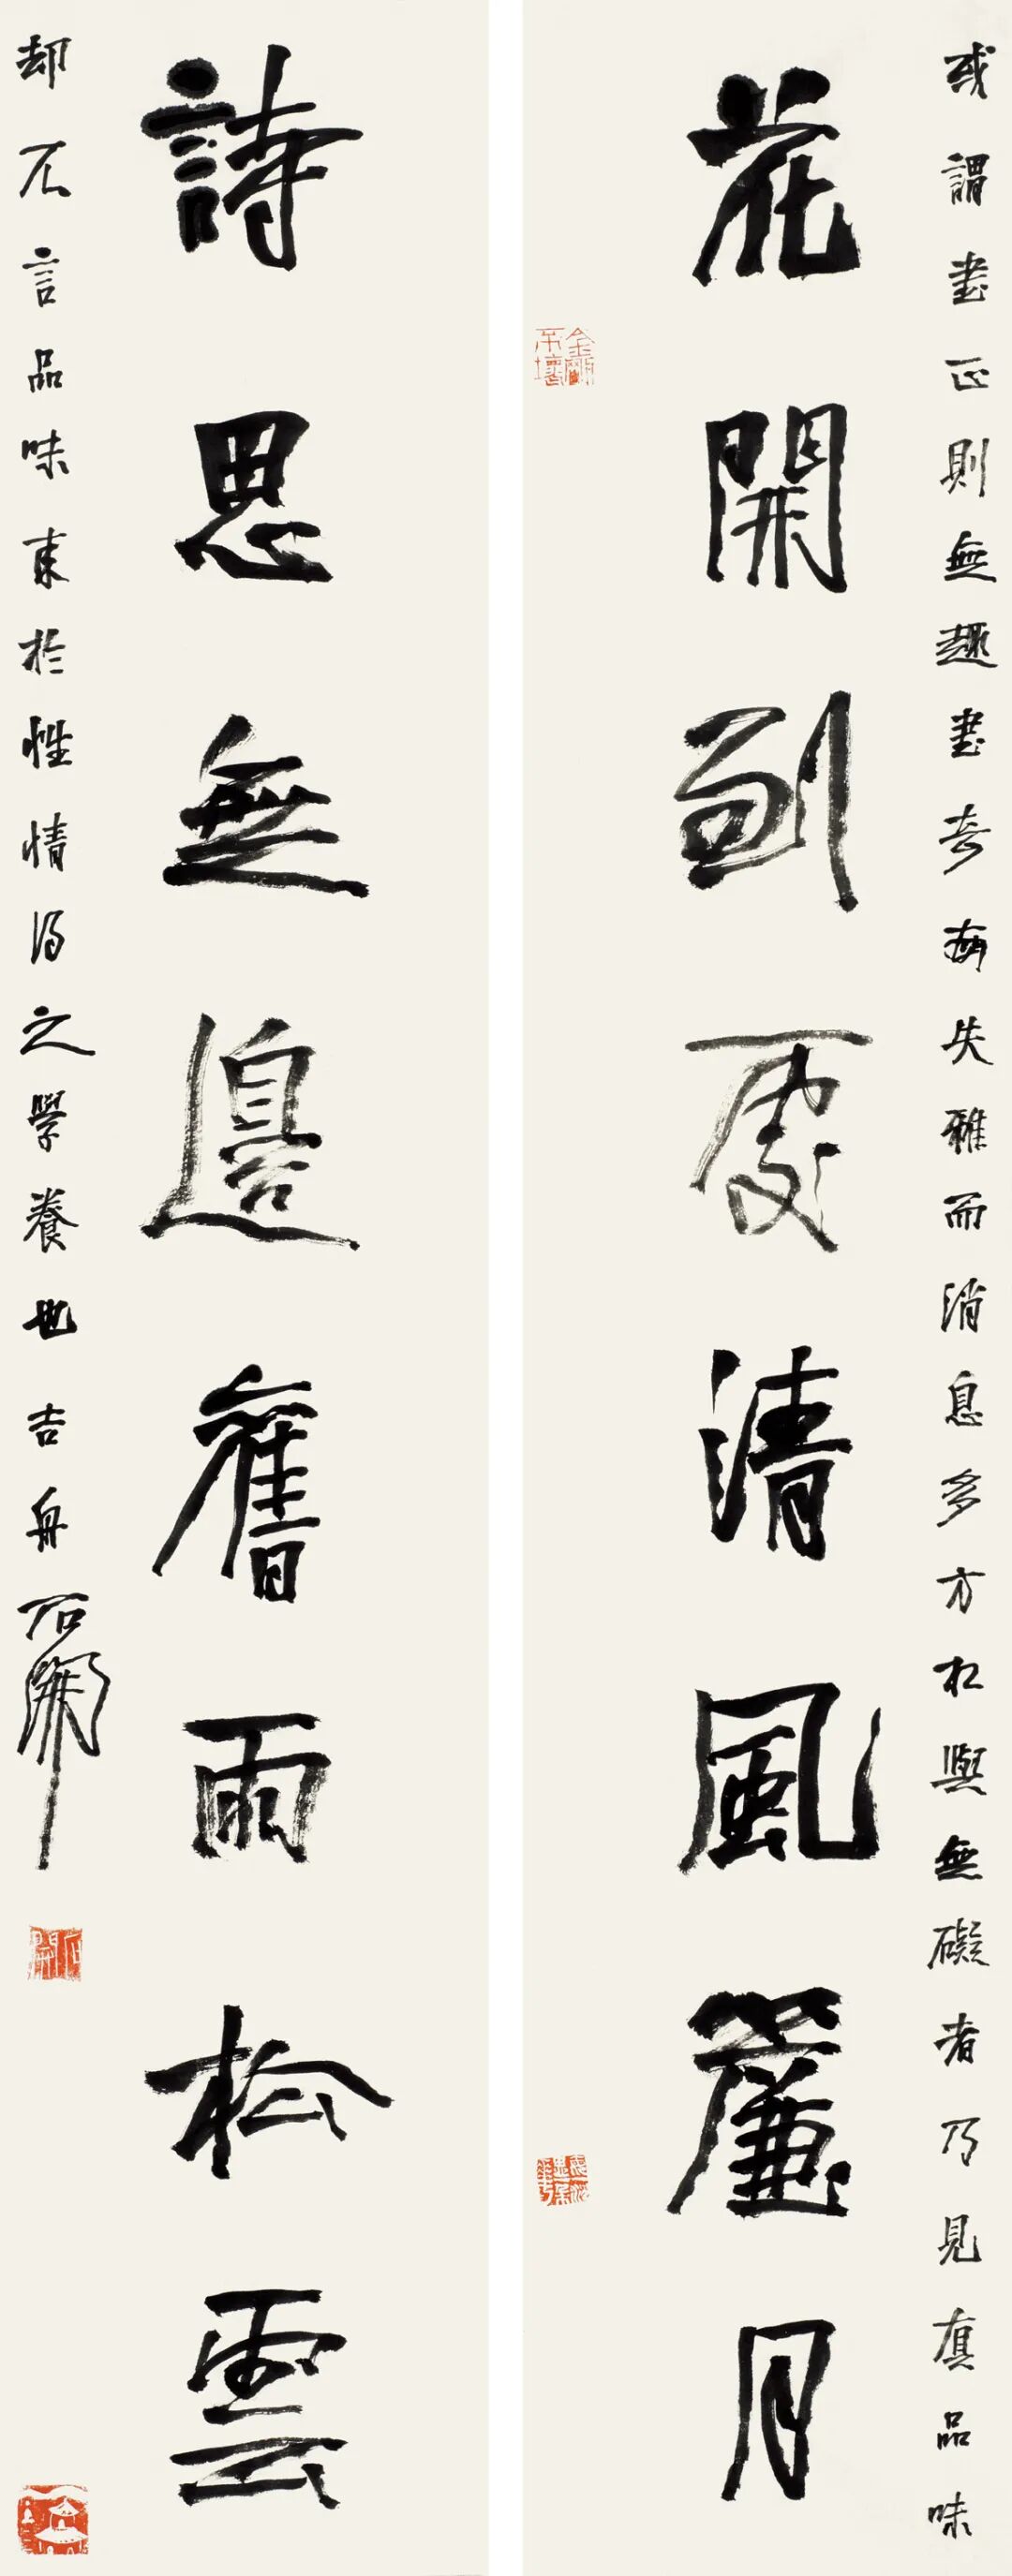 或謂書正則無趣書奇每失雅而消息多方相與無礙者乃見真品味
花開到處清風簾月
金剛不壞
詩思無邊舊雨松雲
却不言品味來於性情得之學養也吉舟石開
石開